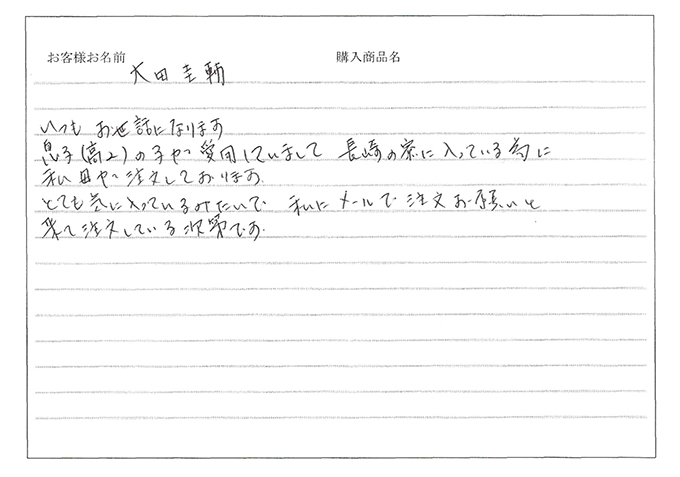 お客様お名前 購入商品名
大田圭輔
いつも お世話になります
息子(高2)の子が愛用していまして 長崎の寮に入っている為に
私田が注文しております。
とても気に入っているみたいで 私にメールで注文お願いと
来て注文している次第です。